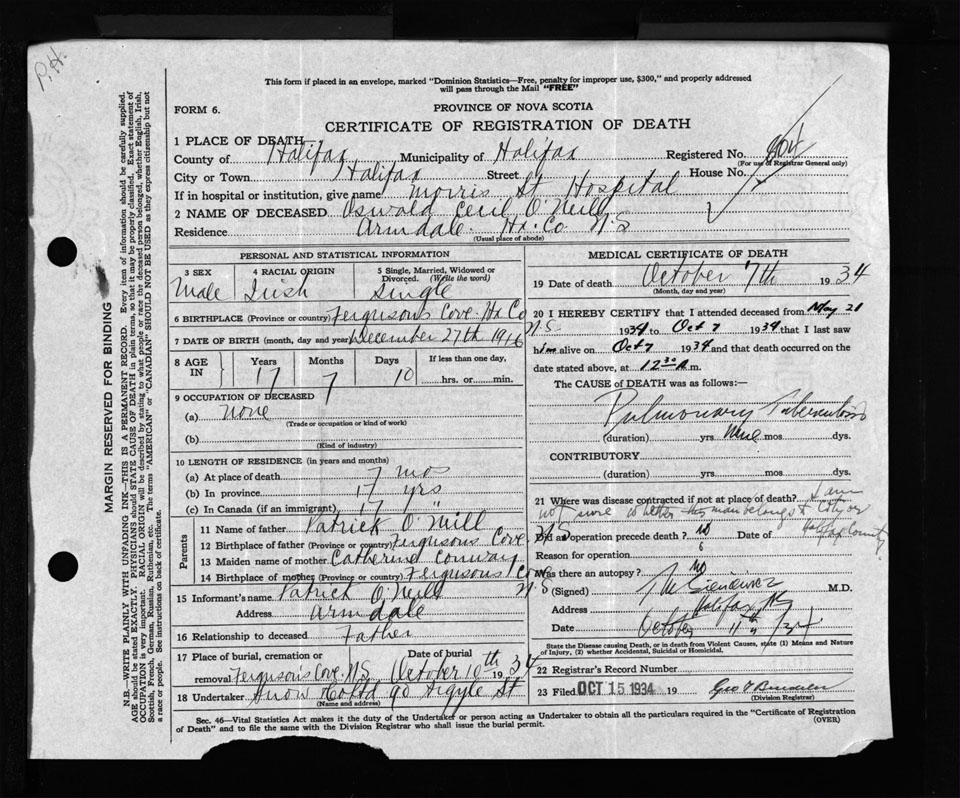 P.H.
This form if placed in an envelope, marked "Dominion Statistics—Free, penalty for improper use, $300," and properly addressed
will pass through the Mail "FREE"
FORM 6.
PROVINCE OF NOVA SCOTIA
CERTIFICATE OF REGISTRATION OF DEATH
1 PLACE OF DEATH
County of Halifax Municipality of Halifax Registered No.
(For use of Registrar General only)
City or Town Halifax Street House No.
If in hospital or institution, give name Morris St Hospital
2 NAME OF DECEASED Oswald Cecil O'Neill
Residence Armdale Hx. Co N.S
(Usual place of abode)
PERSONAL AND STATISTICAL INFORMATION
3 SEX Male
4 RACIAL ORIGIN Irish
5 Single, Married, Widowed or Divorced. (Write the word) Single
6 BIRTHPLACE (Province or country) Ferguson's Cove Hx Co N.S
7 DATE OF BIRTH (month, day and year) December 27th 1916
8 AGE IN Years 17 Months 7 Days 10 If less than one day, ...hrs. or ...min.
9 OCCUPATION OF DECEASED
(a) None
(Trade or occupation or kind of work)
(b)
(Kind of industry)
10 LENGTH OF RESIDENCE (in years and months)
(a) At place of death 7 mos
(b) In province 17 yrs
(c) In Canada (if an immigrant) 17 "
Parents
11 Name of father Patrick O'Neill
12 Birthplace of father (Province or country) Fergusons Cove N.S
13 Maiden name of mother Catherine Conway
14 Birthplace of mother (Province or country) Fergusons Co N.S
15 Informant's name Patrick O'Neill
Address Armdale
16 Relationship to deceased Father
17 Place of burial, cremation or removal Ferguson's Cove N.S. Date of burial October 10th 1934
18 Undertaker Snow Co Ltd 90 Argyle St
(Name and address)
MEDICAL CERTIFICATE OF DEATH
19 Date of Death October 7th 1934
(Month, day and year)
20 I HEREBY CERTIFY that I attended deceased from May 21
1934 to Oct 7 1934 that I last saw
him alive on Oct 7 1934 and that death occurred on the
date stated above, at 12 30 A m.
The CAUSE OF DEATH was as follows:—
Pulmonary Tuberculosis
(duration) yrs Nine mos dys.
CONTRIBUTORY
(duration) yrs. mos. dys.
21 Where was disease contracted if not at place of death? I am
not sure whether this man belongs to City or
Halifax County
Did an operation precede death? no Date of
Reason for operation
Was there an autopsy? no
(Signed) M.D.
Address Halifax
Date October 11th / 34
State the Disease causing Death, or in Death from Violent Causes, state (1) Means and Nature
of Injury, (2) whether Accidental, Suicidal or Homicidal.
22 Registrar's Record Number
23 Filed OCT 15 1934 19
(Division Registrar)
Sec. 46—Vital Statistics Act makes it the duty of the Undertaker or person acting as Undertaker to obtain all the particulars required in the "Certificate of Registration
of Death" and to file the same with the Division Registrar who shall issue the burial permit. (OVER)
MARGIN RESERVED FOR BINDING
N.B.—WRITE PLAINLY WITH UNFADING INK—THIS IS A PERMANENT RECORD. Every item of information should be carefully supplied.
AGE should be stated EXACTLY. PHYSICIANS should STATE CAUSE OF DEATH in plain terms, so that it may be properly classified. Exact statement of
OCCUPATION is very important. RACIAL ORIGIN will be described by stating to what people or race the deceased person belonged, whether English, Irish,
Scottish, French, German, Russian, Ruthenian, etc. The terms "AMERICAN" or "CANADIAN" SHOULD NOT BE USED as they express citizenship but not
a race or people. See instructions on back of certificate.